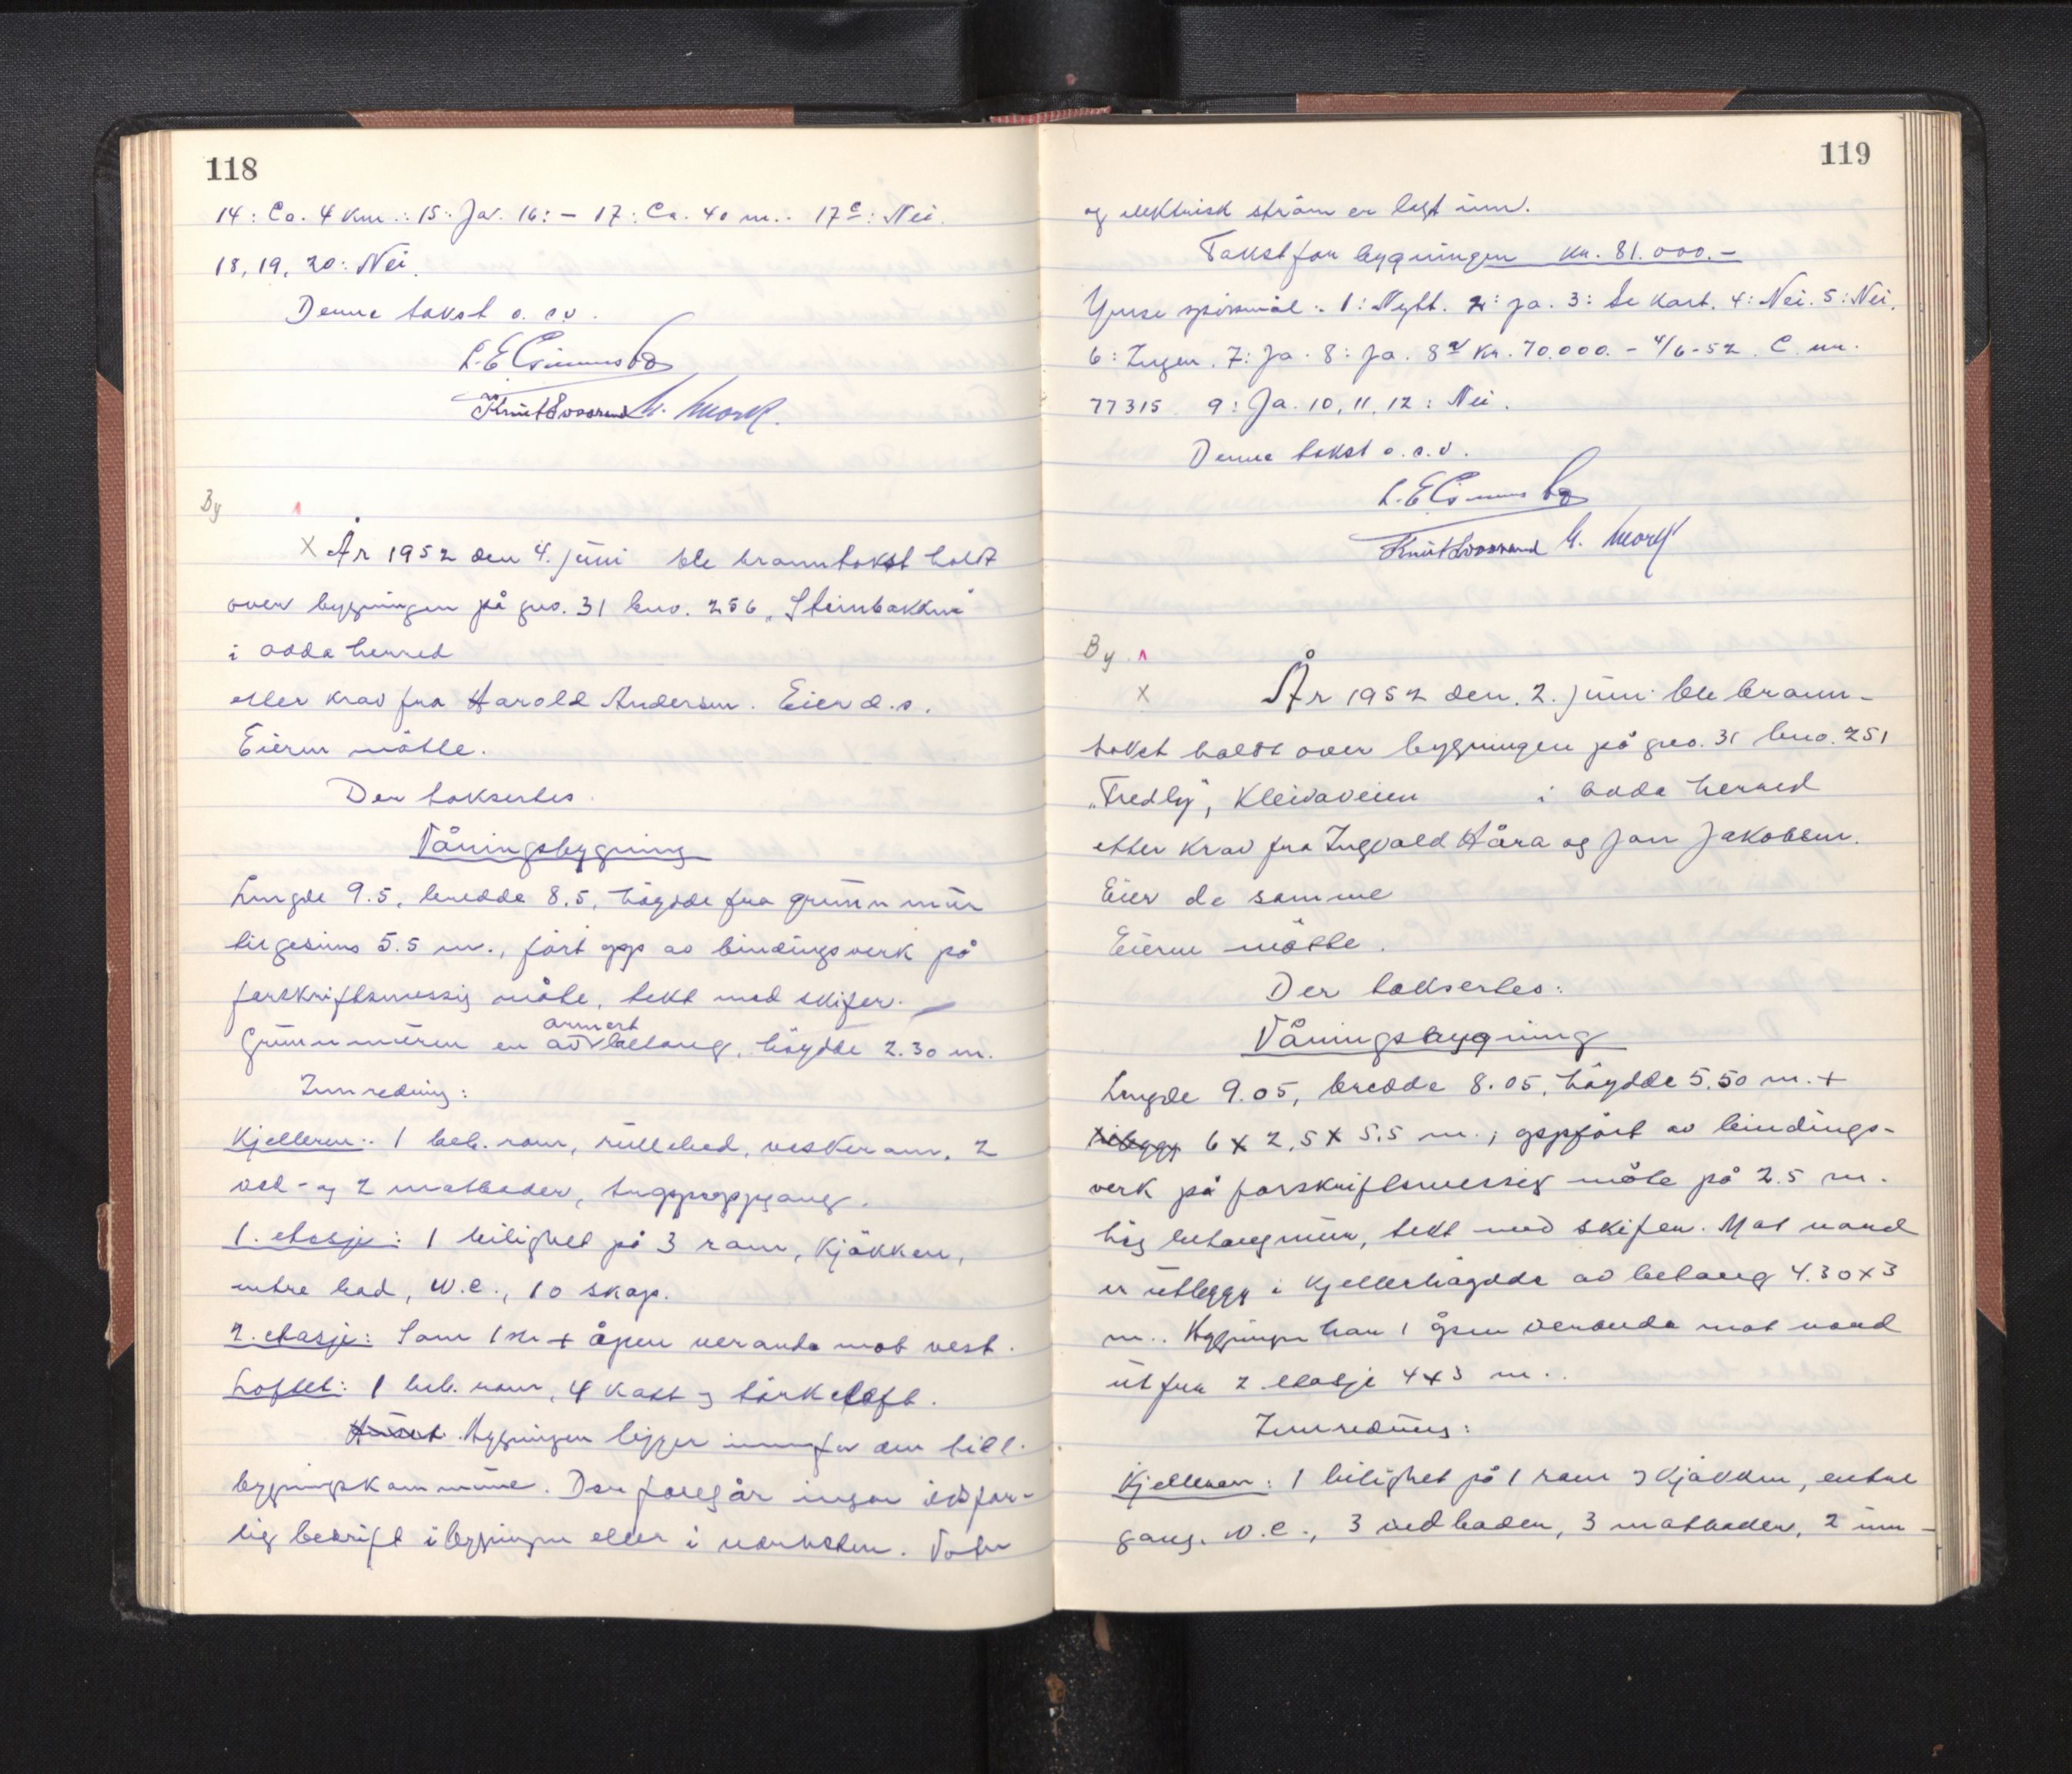 118
14: Ca. 4 km. 15: Ja. 16: – 17: Ca. 40 m. 17c: Nei.
18, 19, 20: Nei.
Denne takst o.s.v.
Knut
By
X År 1952 den 4. juni ble branntakst holdt
over bygningen på gno. 31 bno. 256 „Steinbakken"
i Odda herred
etter krav fra Harald Andersen. Eier d.s.
Eieren møtte.
Der taksertes.
Våningsbygning
Lengde 9.5, bredde 8.5, høgde fra grunnmur
til gesims 5.5 m., ført opp av bindingsverk på
forskriftsmessig måte, tekt med skifer.
armert
Grunnmuren er av betong, høgde 2.30 m.
Innredning:
Kjelleren: 1 beb. rom, rullebod, vaskerom, 2
ved- og 2 matboder, trappoppgang.
1. etasje: 1 leilighet på 3 rom, kjøkken,
entre bad, W.C., 10 skap.
2. etasje: Som 1ste + åpen veranda mot vest.
Loftet: 1 beb. rom, 4 kott og tørkeloft.
Bygningen ligger innenfor den till.
bygningskommune. Der foregår ingen ildsfar-
lig bedrift i bygningen eller i nærheten. Vatn
119
og elektrisk strøm er lagt inn.
Takst for bygningen kr. 81.000.–
Ymse spørsmål: 1: Nytt. 2: Ja. 3: Se kart. 4: Nei. 5: Nei.
6: Ingen. 7: Ja. 8: Ja. 8a kr. 70.000.– 4/6-52. C. nr.
77315 9: Ja. 10, 11, 12: Nei.
Denne takst o.s.v.
Knut
By.
X År 1952 den 2. juni ble brann-
takst holdt over bygningen på gno. 31 bno. 251
„Fredly", Kleivaveien i Odda herred
etter krav fra Ingvald Håra og Jan Jakobsen.
Eier de samme
Eierne møtte.
Der taksertes:
Våningsbygning
Lengde 9.05, bredde 8.05, høgde 5.50 m. +
tilbygg 6 x 2,5 x 5.5 m.; oppført av bindings-
verk på forskriftsmessig måte på 2.5 m.
høg betongmur, tekt med skifer. Mot nord
er utbygg i kjellerhøgde av betong 4.30 x 3
m.. Bygningen har 1 åpen veranda mot nord
ut fra 2 etasje 4 x 3 m..
Innredning:
Kjelleren: 1 leilighet på 1 rom og kjøkken, entre
gang, W.C., 3 vedboder, 3 matboder, 2 inn-